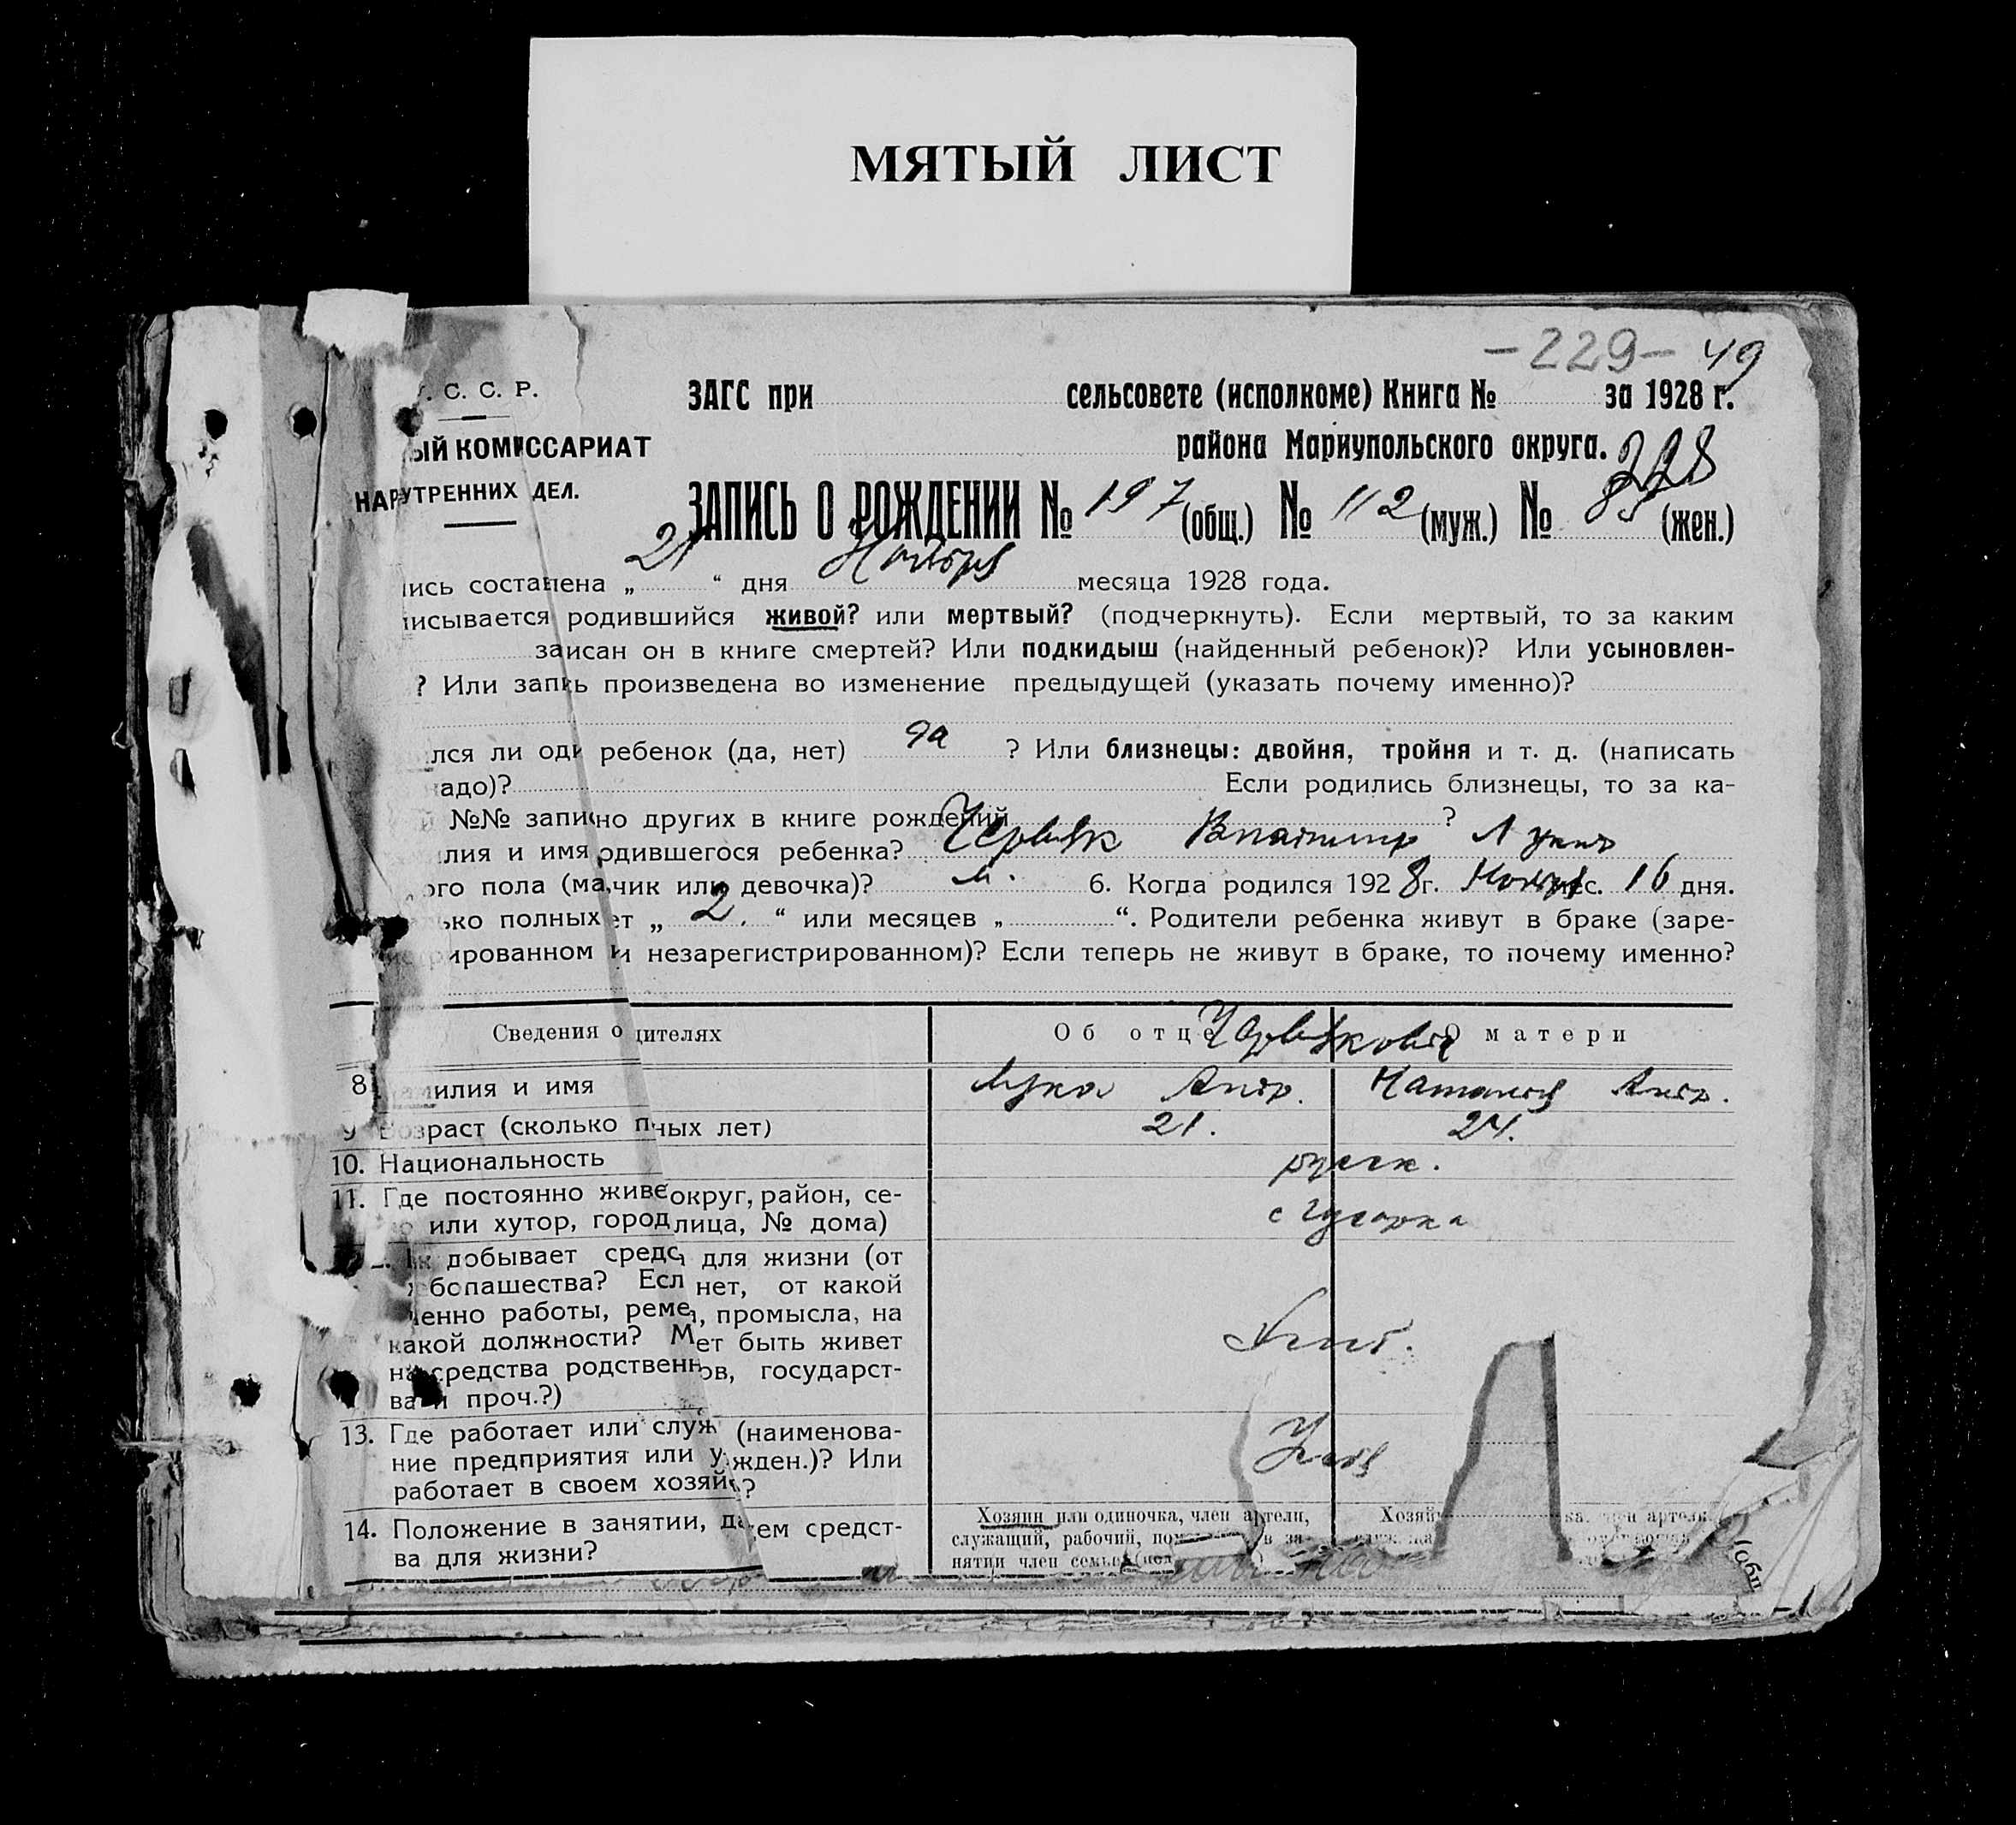 МЯТЫЙ ЛИСТ
-229- 49
. С. С. Р.
ЗАГС при сельсовете (исполкоме) Книга № за 1928 г.
ЫЙ КОМИССАРИАТ
района Мариупольского округа.
228
НАР УТРЕННИХ ДЕЛ.
ЗАПИСЬ О РОЖДЕНИИ № 197 (общ.) № 112 (муж.) № 85 (жен.)
ись составлена „ 21 “ дня Ноября месяца 1928 года.
исывается родившийся живой? или мертвый? (подчеркнуть). Если мертвый, то за каким
заисан он в книге смертей? Или подкидыш (найденный ребенок)? Или усыновлен-
? Или запись произведена во изменение предыдущей (указать почему именно)?
лся ли оди ребенок (да, нет) да ? Или близнецы: двойня, тройня и т. д. (написать
адо)? Если родились близнецы, то за ка-
й №№ записно других в книге рождений ?
лия и имя одившегося ребенка? Червяк Владимир Лукич
ого пола (ма,чик или девочка)? м. 6. Когда родился 1928 г. Ноября мес. 16 дня.
ько полных ет „ 2. “ или месяцев „ “. Родители ребенка живут в браке (заре-
истрированном и незарегистрированном)? Если теперь не живут в браке, то почему именно?
Сведения о дителях Об отце О матери
Червяковы
8 амилия и имя Лука Антр. Наталия Антр.
9 Возраст (сколько п ных лет) 21. 24.
10. Национальность русск.
11. Где постоянно живе округ, район, се-
о или хутор, город лица, № дома) с Гусарка
. ак добывает средс для жизни (от
бопашества? Есл нет, от какой
енно работы, реме , промысла, на
какой должности? М ет быть живет
на средства родственн ов, государст-
ва и проч.?)
13. Где работает или служ (наименова-
ние предприятия или у жден.)? Или
работает в своем хозяй ?
14. Положение в занятии, да ем средст-
ва для жизни?
Хозяин или одиночка, член артели,
служащий, рабочий, по в за-
нятии член семьи
Хозяи ка, член артели
(общ